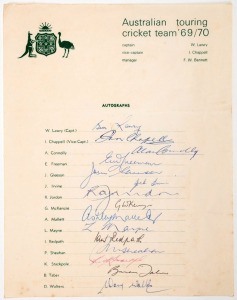 Australian touring
cricket team '69/70
captain W. Lawry
vice-captain I. Chappell
manager F. W. Bennett
AUTOGRAPHS
W. Lawry (Capt.) Bill Lawry
I. Chappell (Vice-Capt.) Ian Chappell
A. Connolly Alan Connolly
E. Freeman Eric Freeman
J. Gleeson John Gleeson
J. Irvine
R. Jordan
G. McKenzie
A. Mallett Ashley Mallett
L. Mayne L. Mayne
I. Redpath Redpath
P. Sheahan Sheahan
K. Stackpole
B. Taber Brian Taber
D. Walters Doug Walters